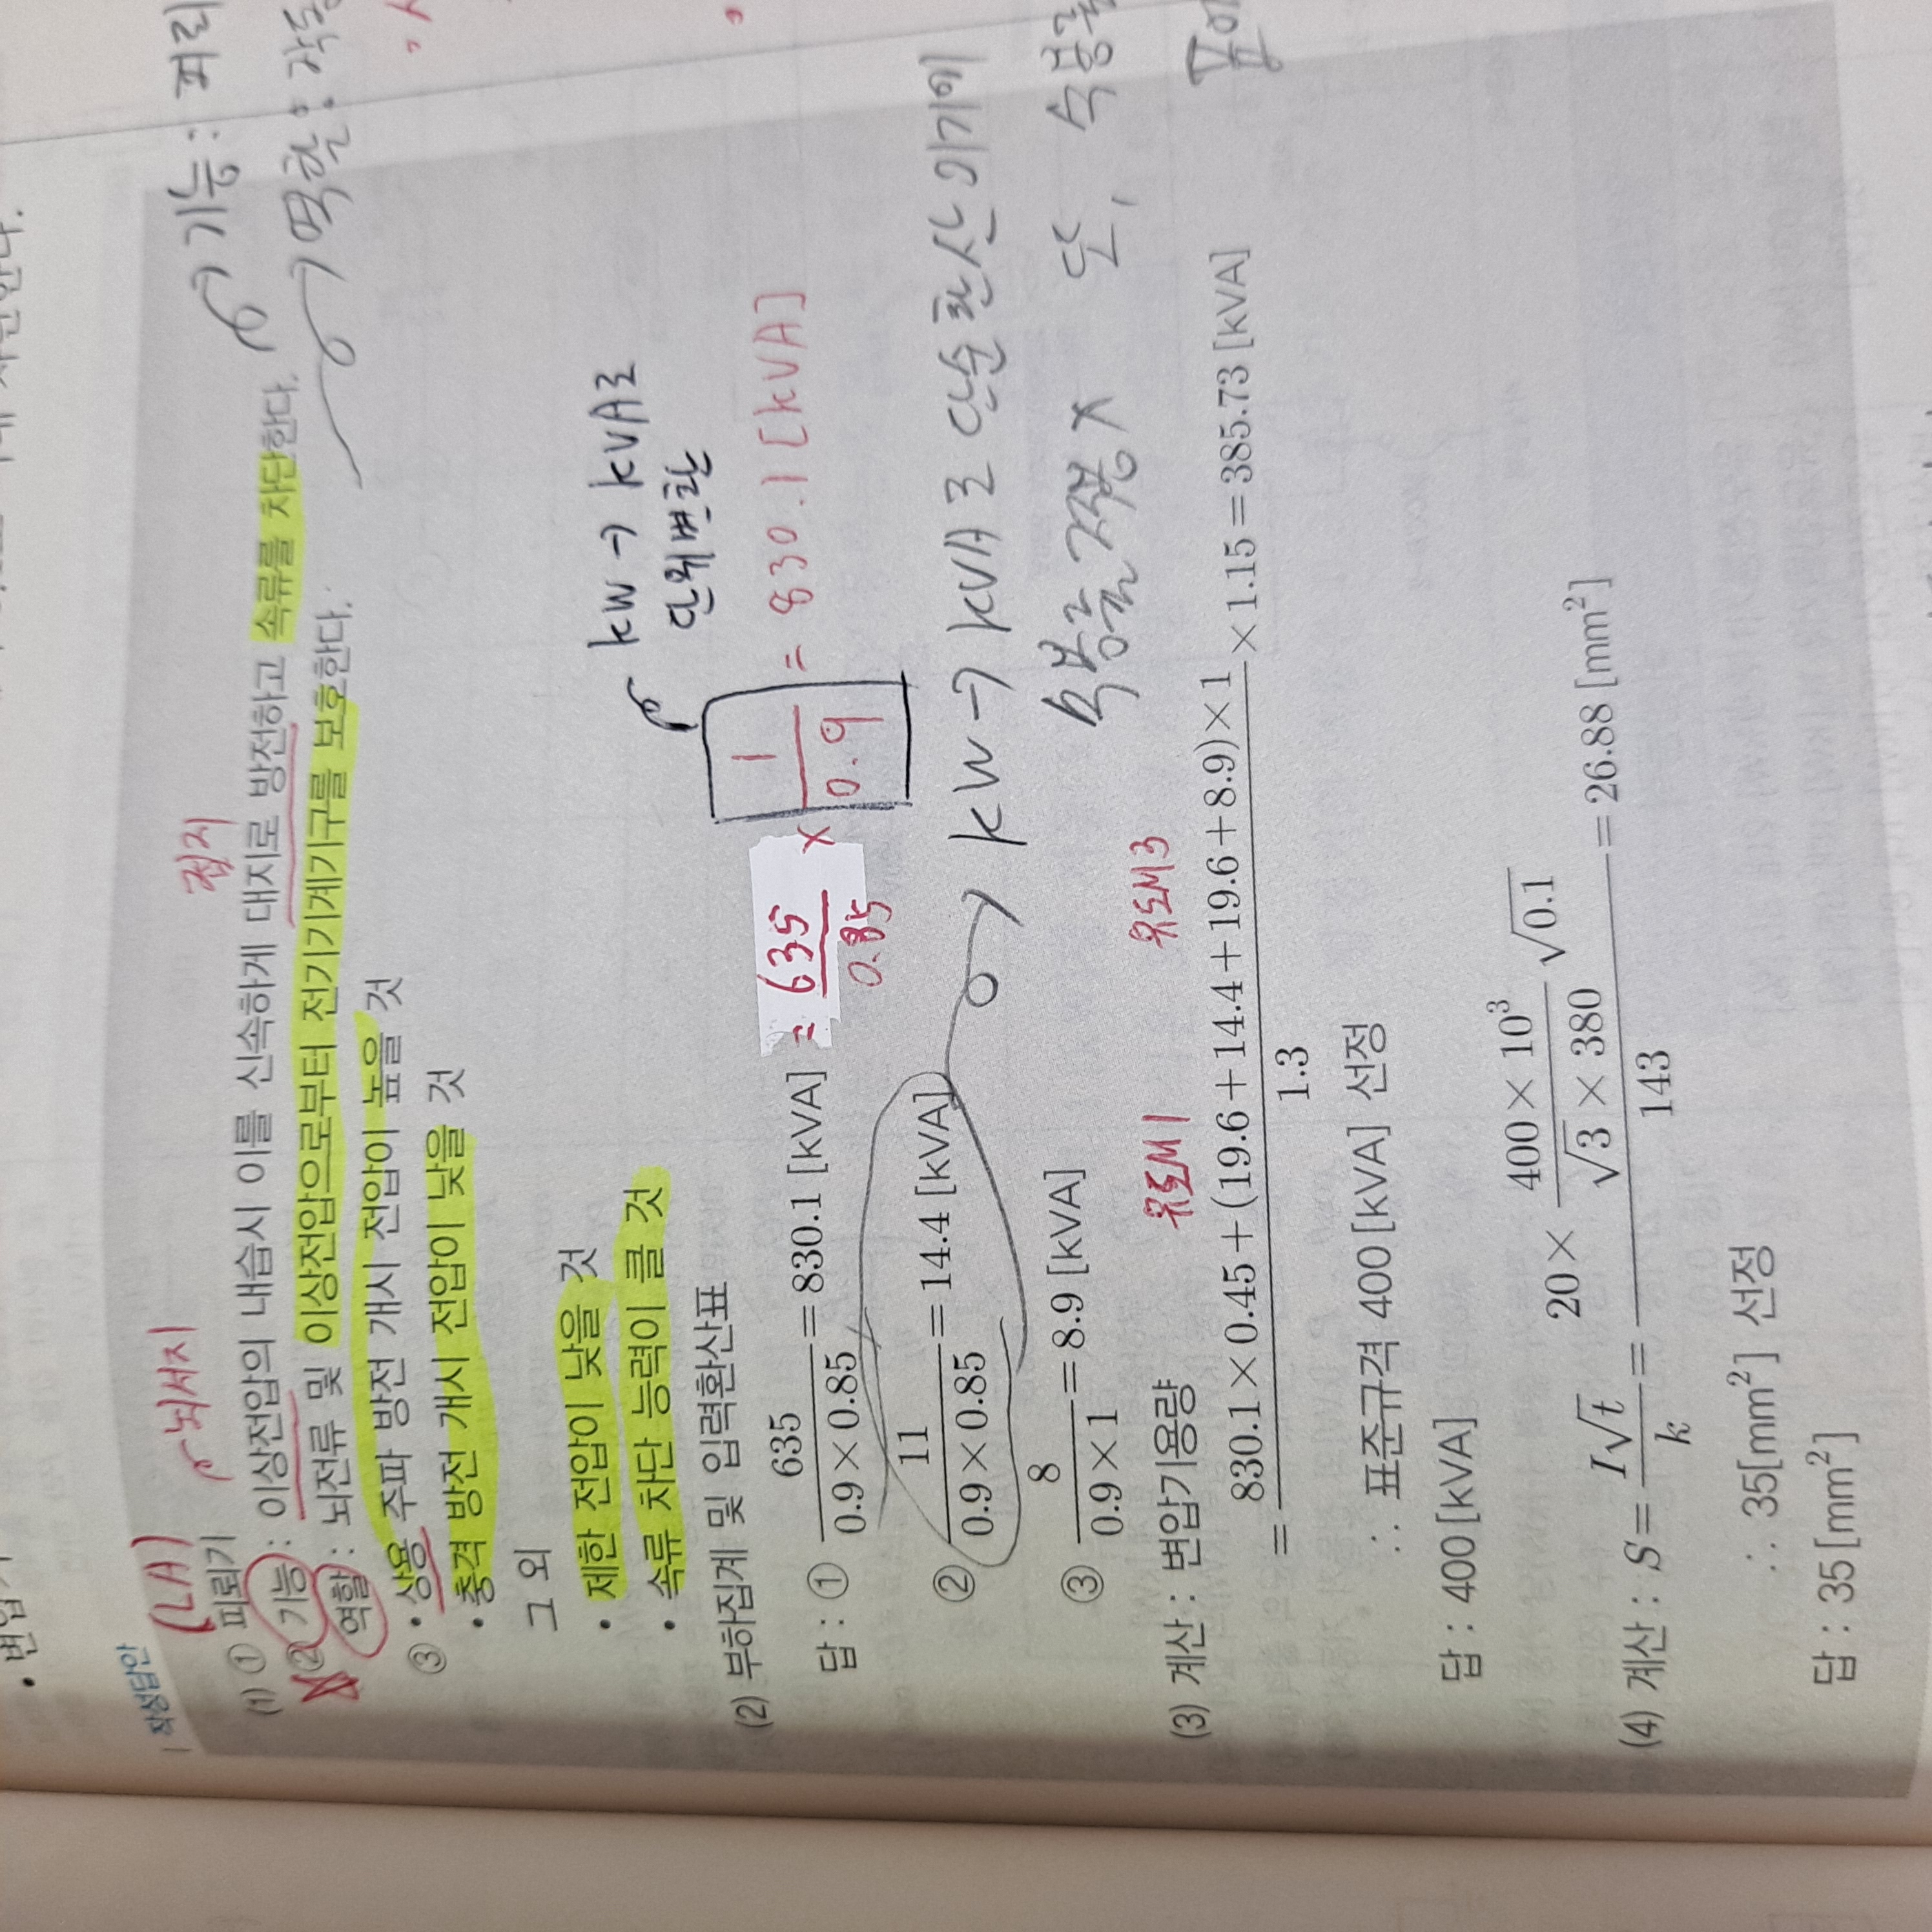 작성답안
(LA)
뇌서지
접지
(1) ① 피뢰기
② 기능 : 이상전압의 내습시 이를 신속하게 대지로 방전하고 속류를 차단한다.
기능 :
역할 : 뇌전류 및 이상전압으로부터 전기기계기구를 보호한다.
역할 :
③ • 상용 주파 방전 개시 전압이 높을 것
• 충격 방전 개시 전압이 낮을 것
그 외
• 제한 전압이 낮을 것
• 속류 차단 능력이 클 것
(2) 부하집계 및 입력환산표
kW → kVA로
단위변환
답 : ① 635/(0.9×0.85) = 830.1 [kVA] = 635/0.85 × 1/0.9 = 830.1 [kVA]
② 11/(0.9×0.85) = 14.4 [kVA]
kW → kVA로 단순환산이기에
③ 8/(0.9×1) = 8.9 [kVA]
수용률 적용 X 또,
(3) 계산 : 변압기용량
유도M1 유도M3
= (830.1×0.45+(19.6+14.4+19.6+8.9)×1)/1.3 ×1.15 = 385.73 [kVA]
∴ 표준규격 400 [kVA] 선정
답 : 400 [kVA]
(4) 계산 : S = I√t/k = (20× (400×10³)/(√3×380) √0.1)/143 = 26.88 [mm²]
∴ 35[mm²] 선정
답 : 35 [mm²]